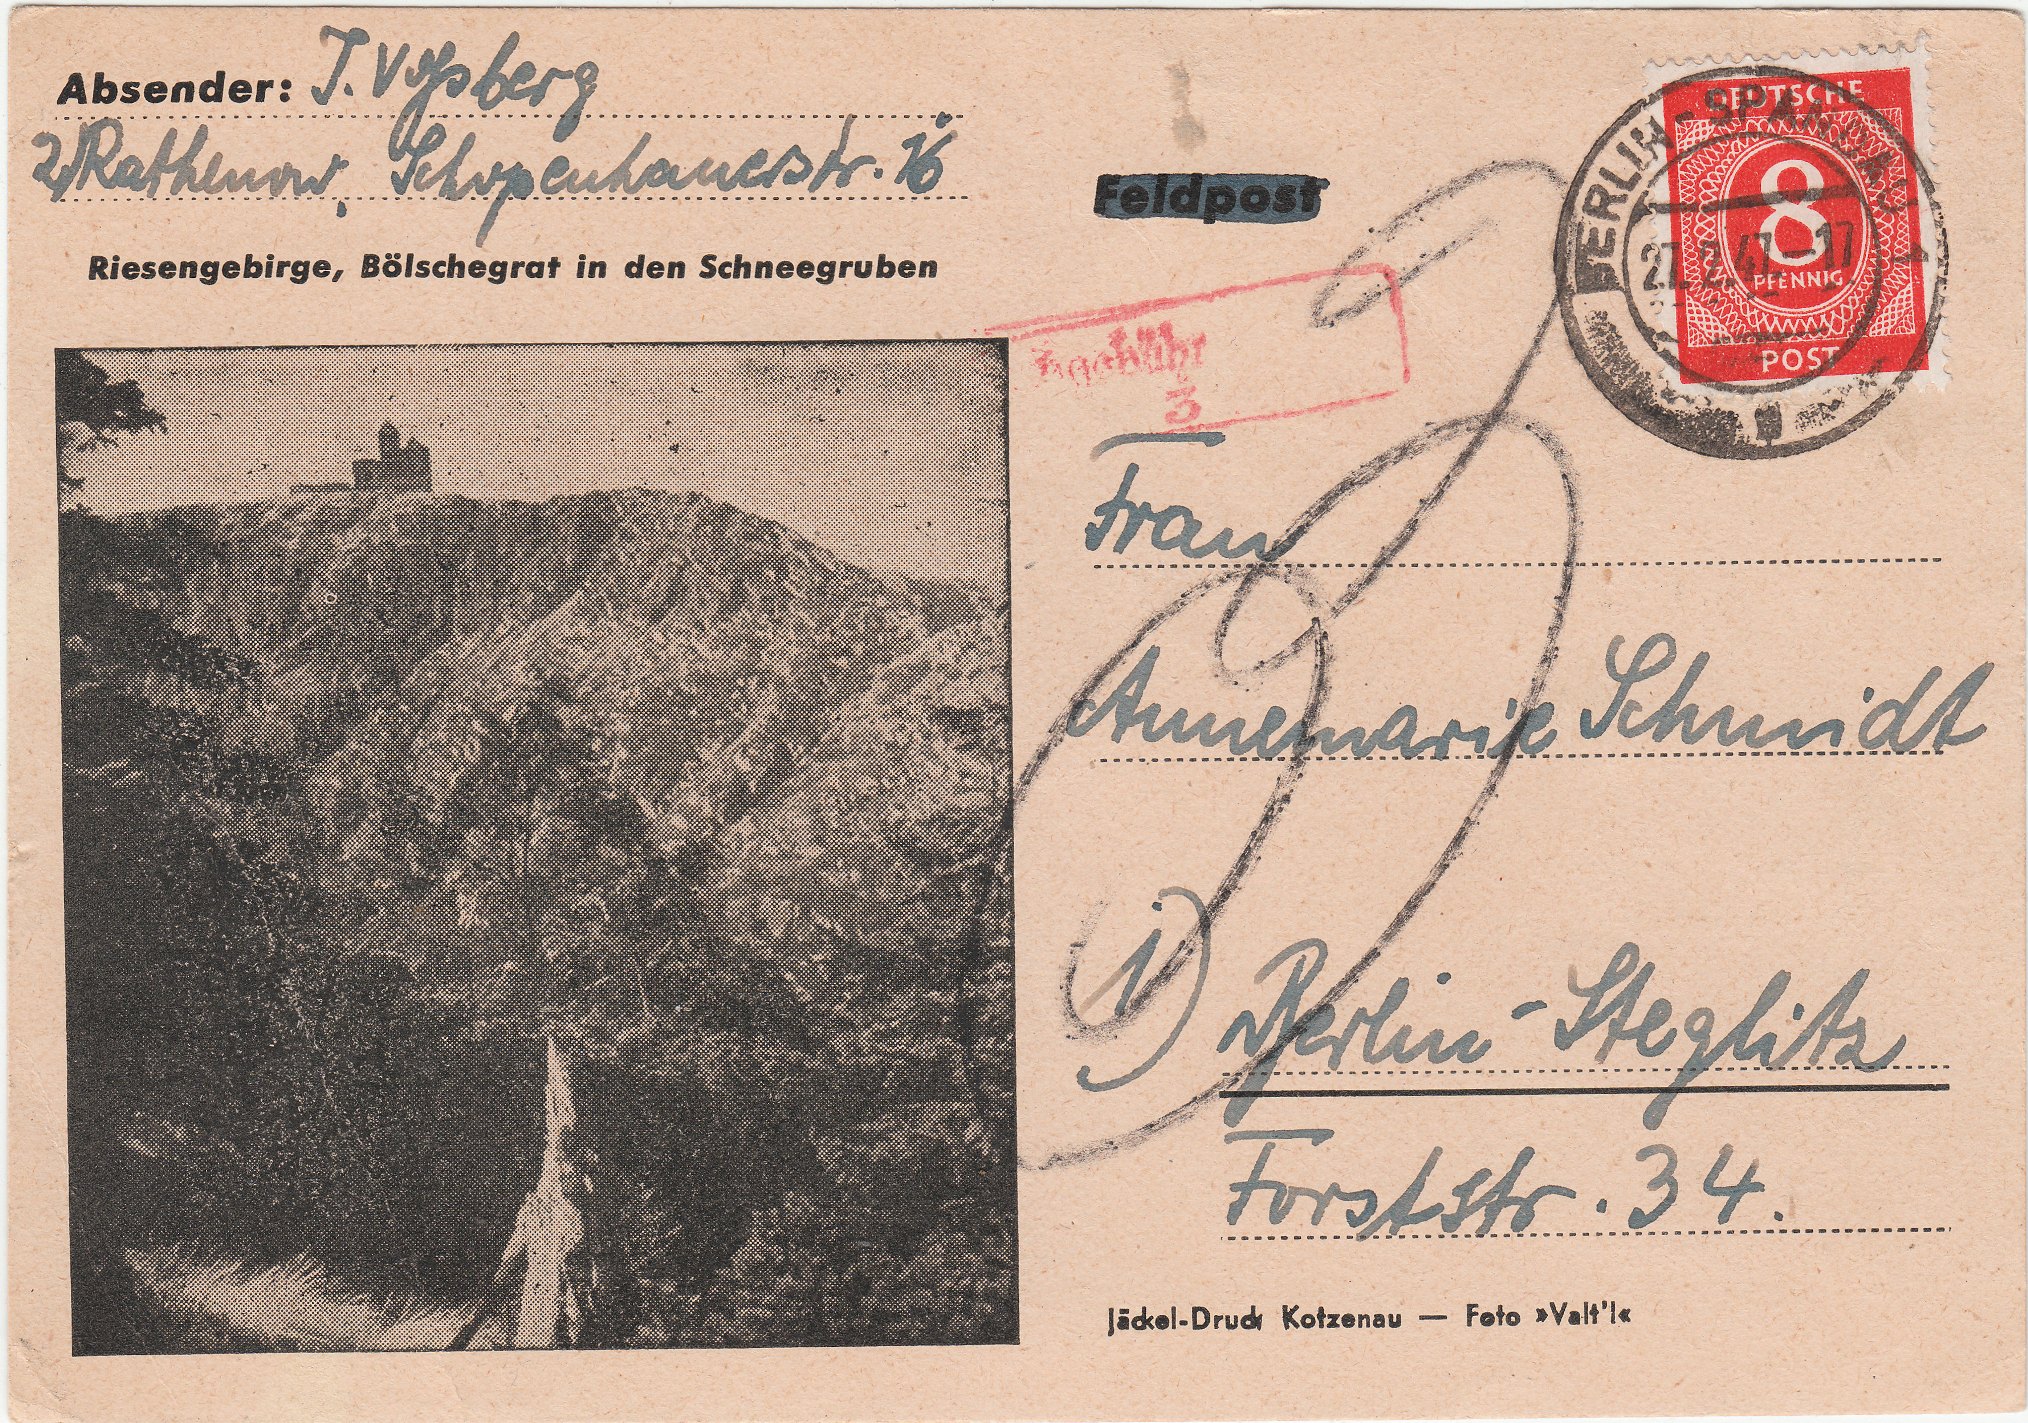 Absender: J. Voßberg
2) Rathenow, Schopenhauerstr. 16
Riesengebirge, Bölschegrat in den Schneegruben
Feldpost
DEUTSCHE
8
PFENNIG
POST
BERLIN-SPANDAU
27.2.47.-17
3
Frau
Annemarie Schmidt
1) Berlin-Steglitz
Forststr. 34.
Jäckel-Druck Kotzenau — Foto »Valt'l«